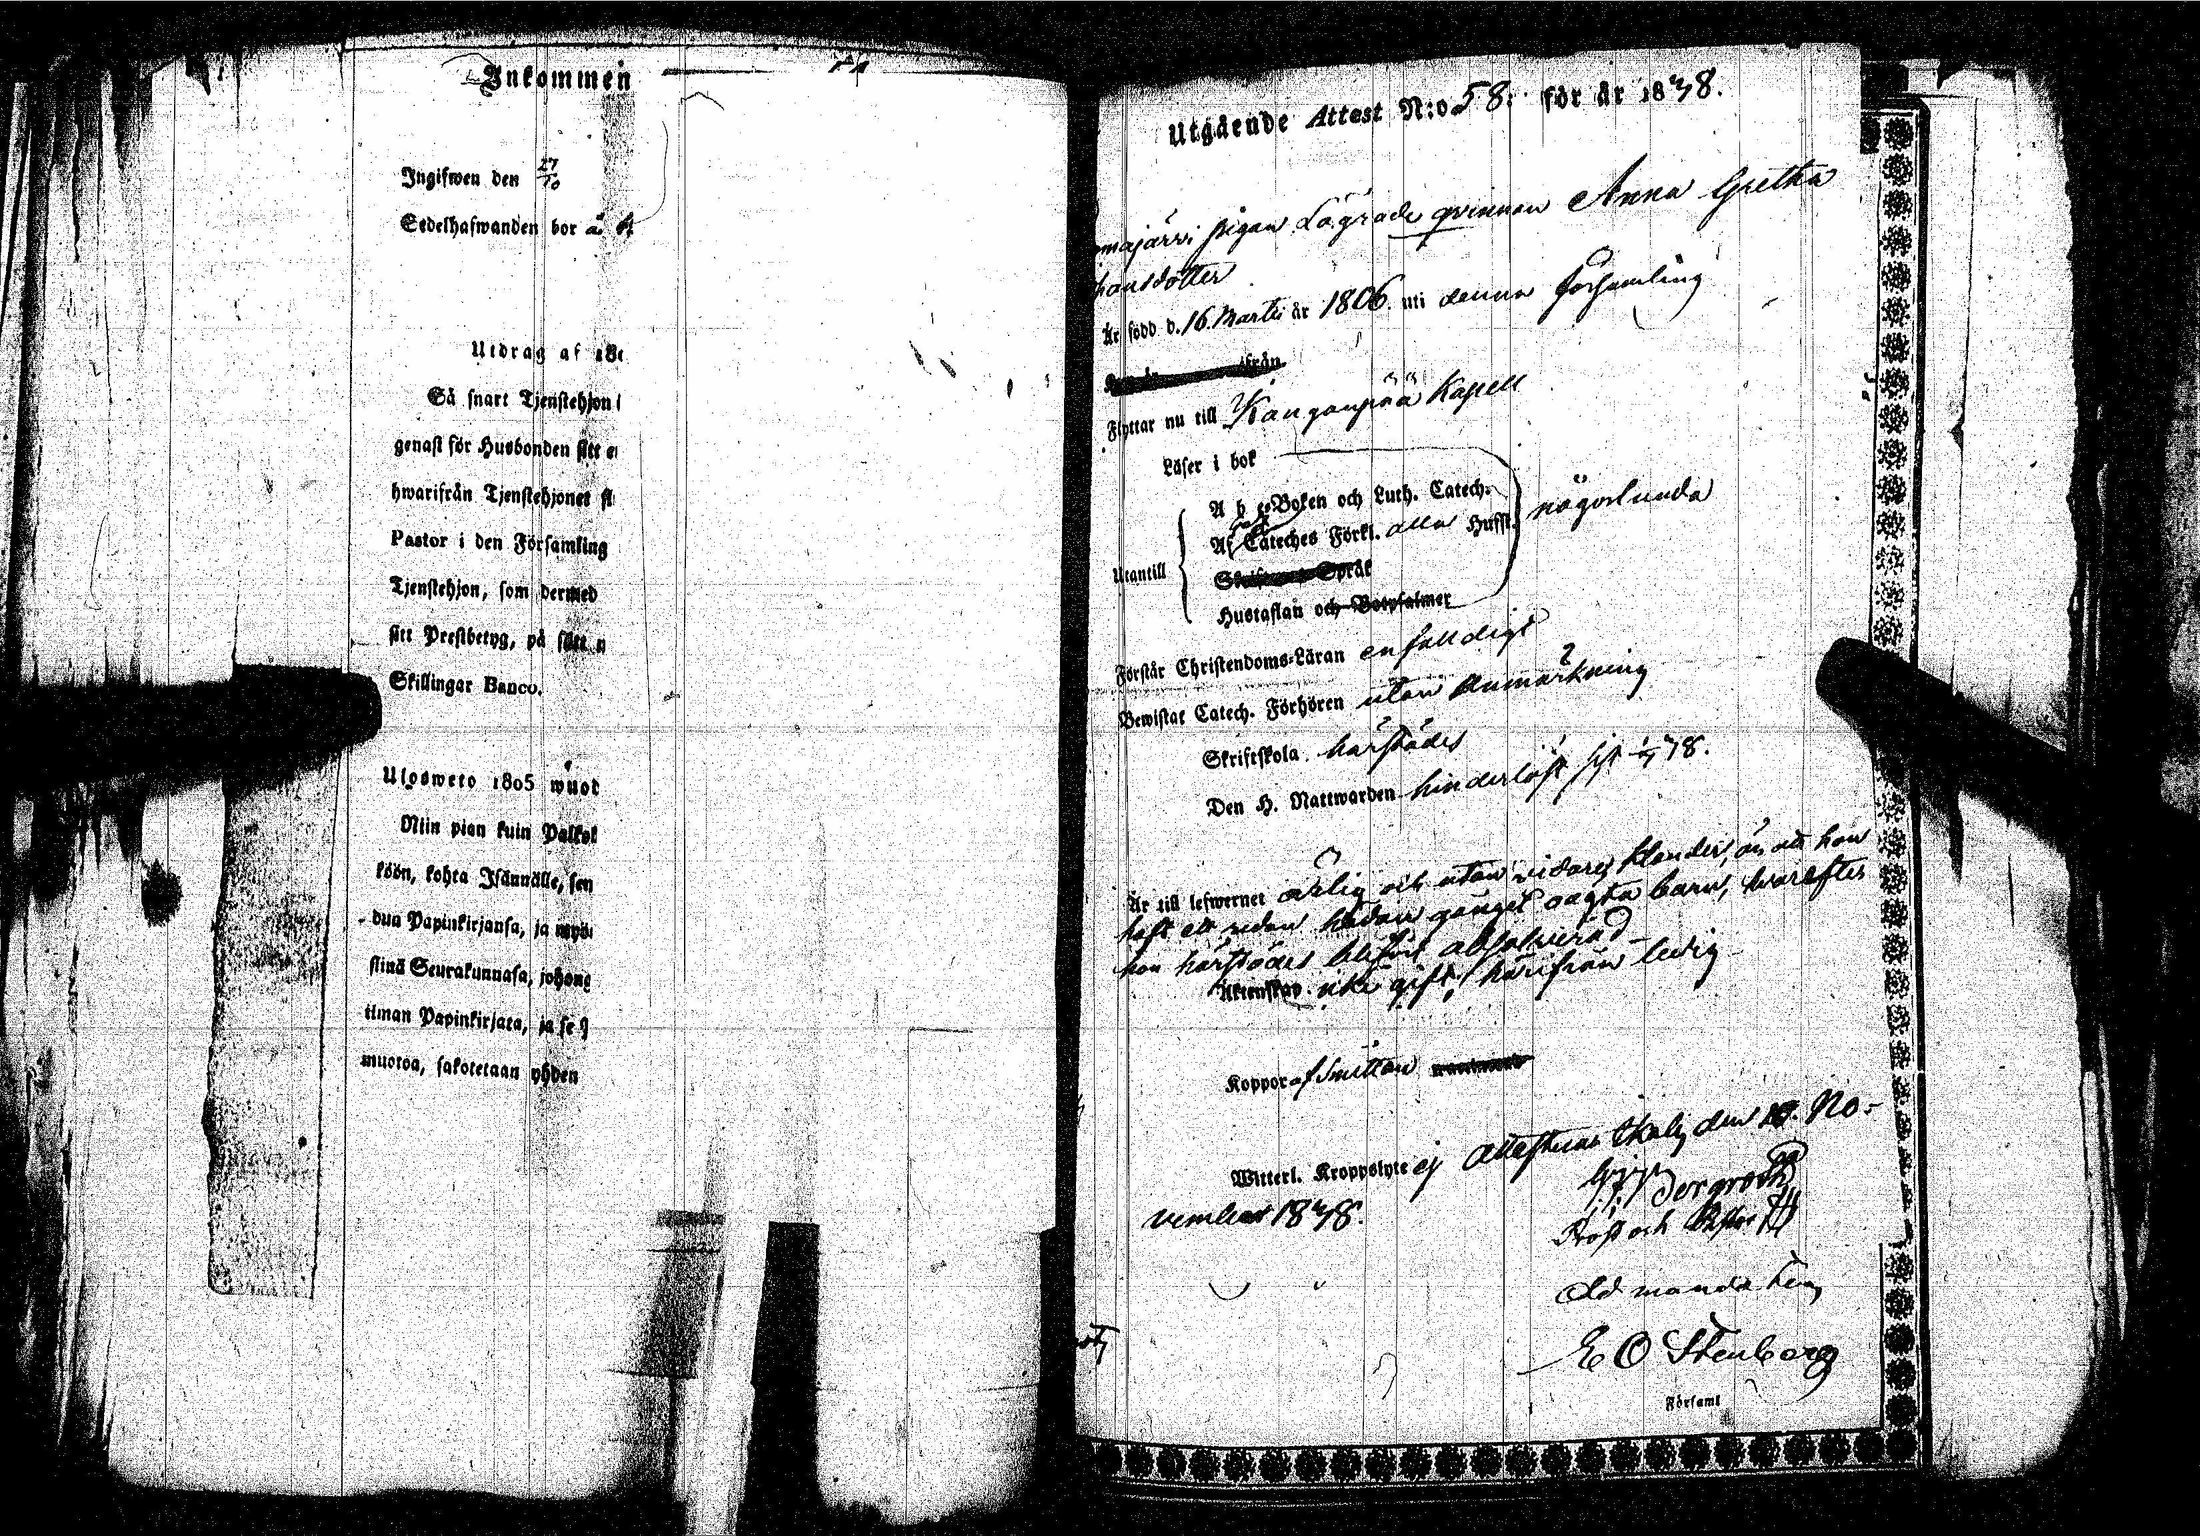 Inkommen
Ingifwen den 27/10
Sedelhafwanden bor å
Utdrag af
Så snart Tjenstehjon
genast för Husbonden sitt
hwarifrån Tjenstehjonet
Pastor i den Församling
Tjenstehjon, som dermed
sitt Prestbetyg, på sätt
Skillingar Banco.
Ulosweto 1805 wuod
Niin pian kuin Palkol
köön, kohta Isännälle, sen
dua Papinkirjansa, ja myö
stinä Seurakunnasa, johong
ilman Papinkirjata, ja se
muotoa, sakotetaan yhden
Utgående Attest N:o 58. för år 1838.
majärvi pigan Lägrade qvinnan Anna Gretha
hansdotter
Är född d. 16. Martii år 1806. uti denna församling
ifrån
Flyttar nu till Kanganpää Kapell
Läser i bok
A b c-Boken och Luth. Catech.
Cateches Förkl. alla Hufst. någorlunda
Utantill
Språk
Hustaflan och Botpsalmer
Förstår Christendoms-Läran enfalldigt
Bewistat Catech. Förhören utan Anmärkning
Skriftskola härstädes
Den H. Nattwarden hinderlöst sist 38.
Är till lefwernet ärlig och utan vidare klander, än att hon
haft ett redan hädan gånget oägta barn, hvarefter
hon härstädes blifvit absolverad
Äktenskap icke gift, härifrån ledig
Koppor af Smittan
Witterl. Kroppslyte ej Attesteras Ikalis den No-
vember 1838.
Bergroth
Prost och Pastor
Ad mandatum
E O Stenberg
Församl